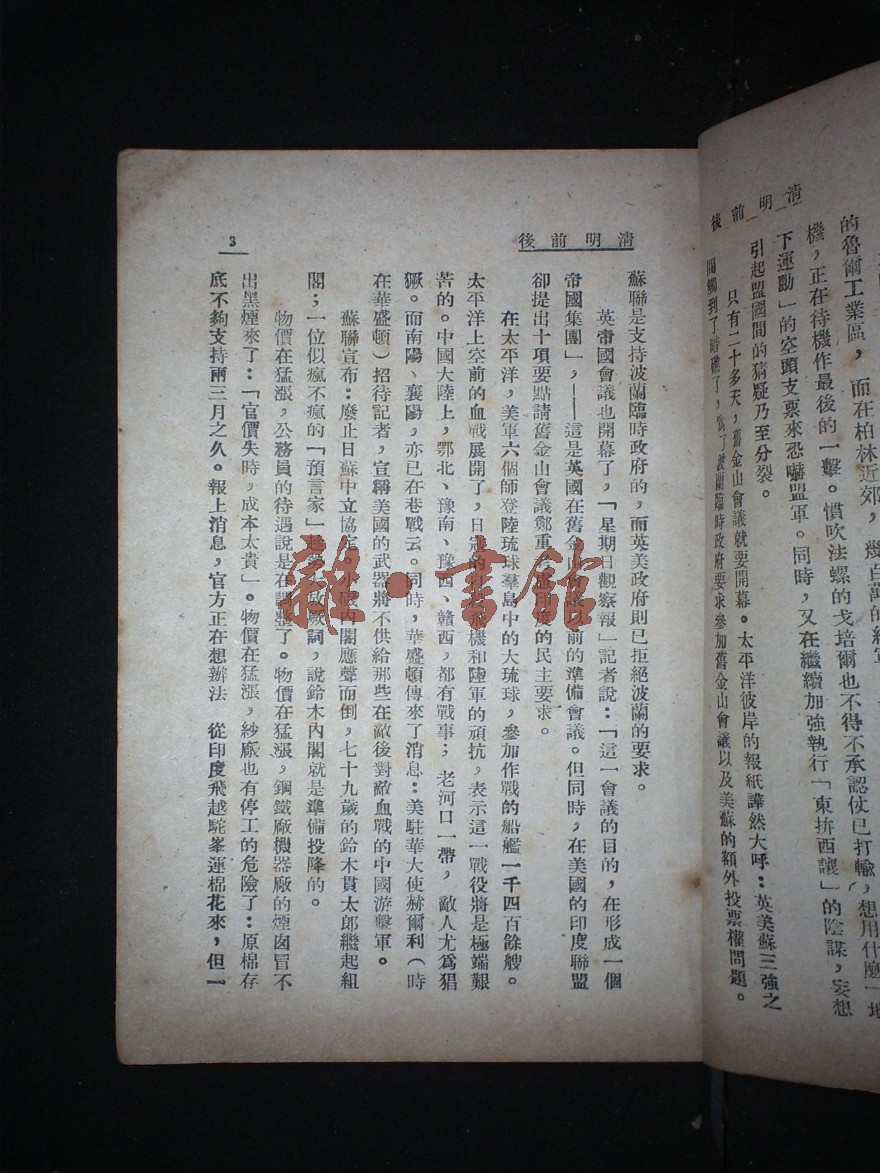 清明前後
的魯爾工業區，而在柏林近郊，幾百萬的紅軍
機，正在待機作最後的一擊。慣吹法螺的戈培爾也不得不承認仗已打輸，想用什麼「地
下運動」的空頭支票來恐嚇盟軍。同時，又在繼續加強執行「東拚西讓」的陰謀，妄想
引起盟國間的猜疑乃至分裂。
只有二十多天，舊金山會議就要開幕。太平洋彼岸的報紙譁然大呼：英美蘇三強之
間觸到了暗礁了，爲了波蘭臨時政府要求參加舊金山會議以及美蘇的額外投票權問題。
清明前後
蘇聯是支持波蘭臨時政府的，而英美政府則已拒絕波蘭的要求。
英帝國會議也開幕了，「星期日觀察報」記者說：「這一會議的目的，在形成一個
帝國集團」，——這是英國在舊金山會議以前的準備會議。但同時，在美國的印度聯盟
卻提出十項要點請舊金山會議鄭重考慮印度的民主要求。
在太平洋，美軍六個師登陸琉球羣島中的大琉球，參加作戰的船艦一千四百餘艘。
太平洋上空前的血戰展開了，日寇的自殺飛機和陸軍的頑抗，表示這一戰役將是極端艱
苦的。中國大陸上，鄂北、豫南、豫西、贛西，都有戰事；老河口一帶，敵人尤爲猖
獗。而南陽、襄陽，亦已在巷戰云。同時，華盛頓傳來了消息：美駐華大使赫爾利（時
在華盛頓）招待記者，宣稱美國的武器將不供給那些在敵後對敵血戰的中國游擊軍。
蘇聯宣布：廢止日蘇中立協定。小磯內閣應聲而倒，七十九歲的鈴木貫太郎繼起組
閣；一位似瘋不瘋的「預言家」起勁大放厥詞，說鈴木內閣就是準備投降的。
物價在猛漲，公務員的待遇說是在調整了。物價在猛漲，鋼鐵廠機器廠的煙囱冒不
出黑煙來了：「官價失時，成本太貴」。物價在猛漲，紗廠也有停工的危險了：原棉存
底不夠支持兩三月之久。報上消息，官方正在想辦法　從印度飛越駝峯運棉花來，但一
3
雜·書館